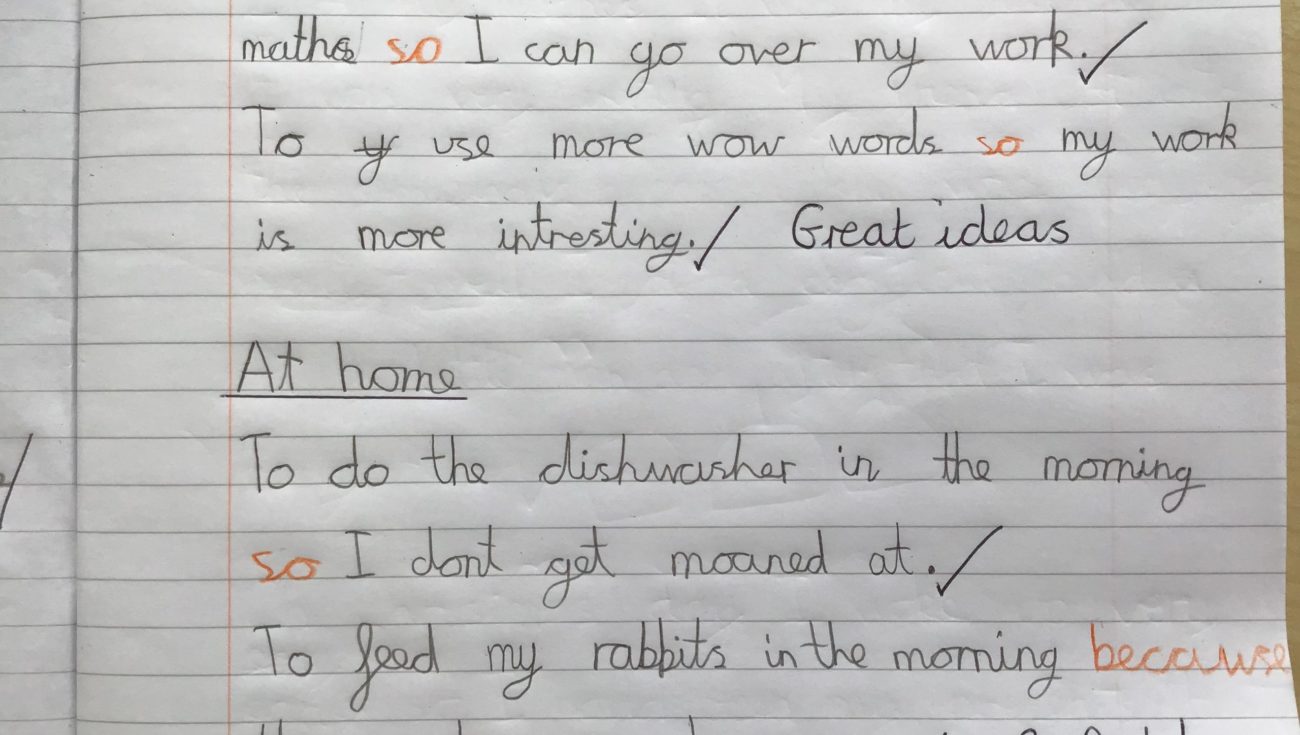 maths so I can go over my work.
To use more wow words so my work
is more intresting. Great ideas
At home
To do the dishwasher in the morning
so I dont get moaned at.
To feed my rabbits in the morning because